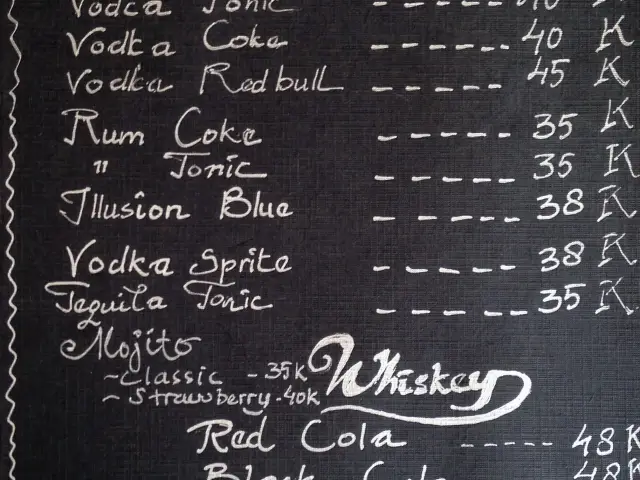 Vodca Tonic ------ 40 K
Vodka Coke ------ 40 K
Vodka Redbull ------ 45 K
Rum Coke ------ 35 K
" Tonic ------ 35 K
Illusion Blue ------ 38 K
Vodka Sprite ----- 38 K
Tequila Tonic ----- 35 K
Mojito
- Classic - 35K
~ Strawberry - 40K
Whiskey
Red Cola ----- 48 K
Black Cola 48 K